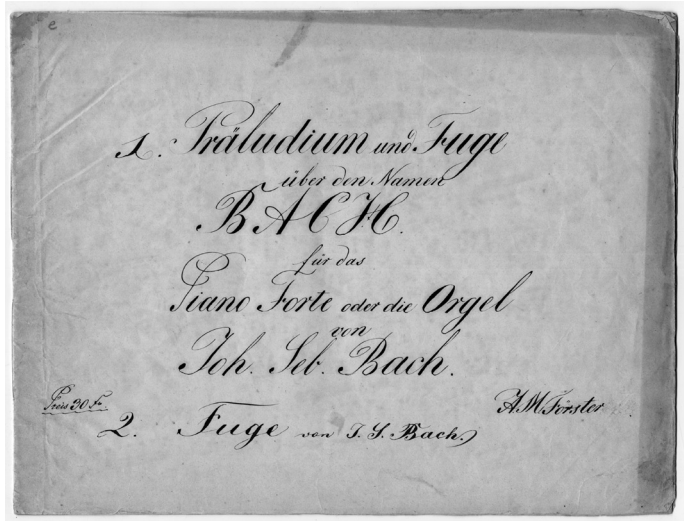 e
1. Präludium und Fuge
über den Namen
BACH.
für das
Piano Forte oder die Orgel
von
Joh. Seb. Bach.
Preis 30 Fr.
A M Förster
2. Fuge von J. S. Bach.